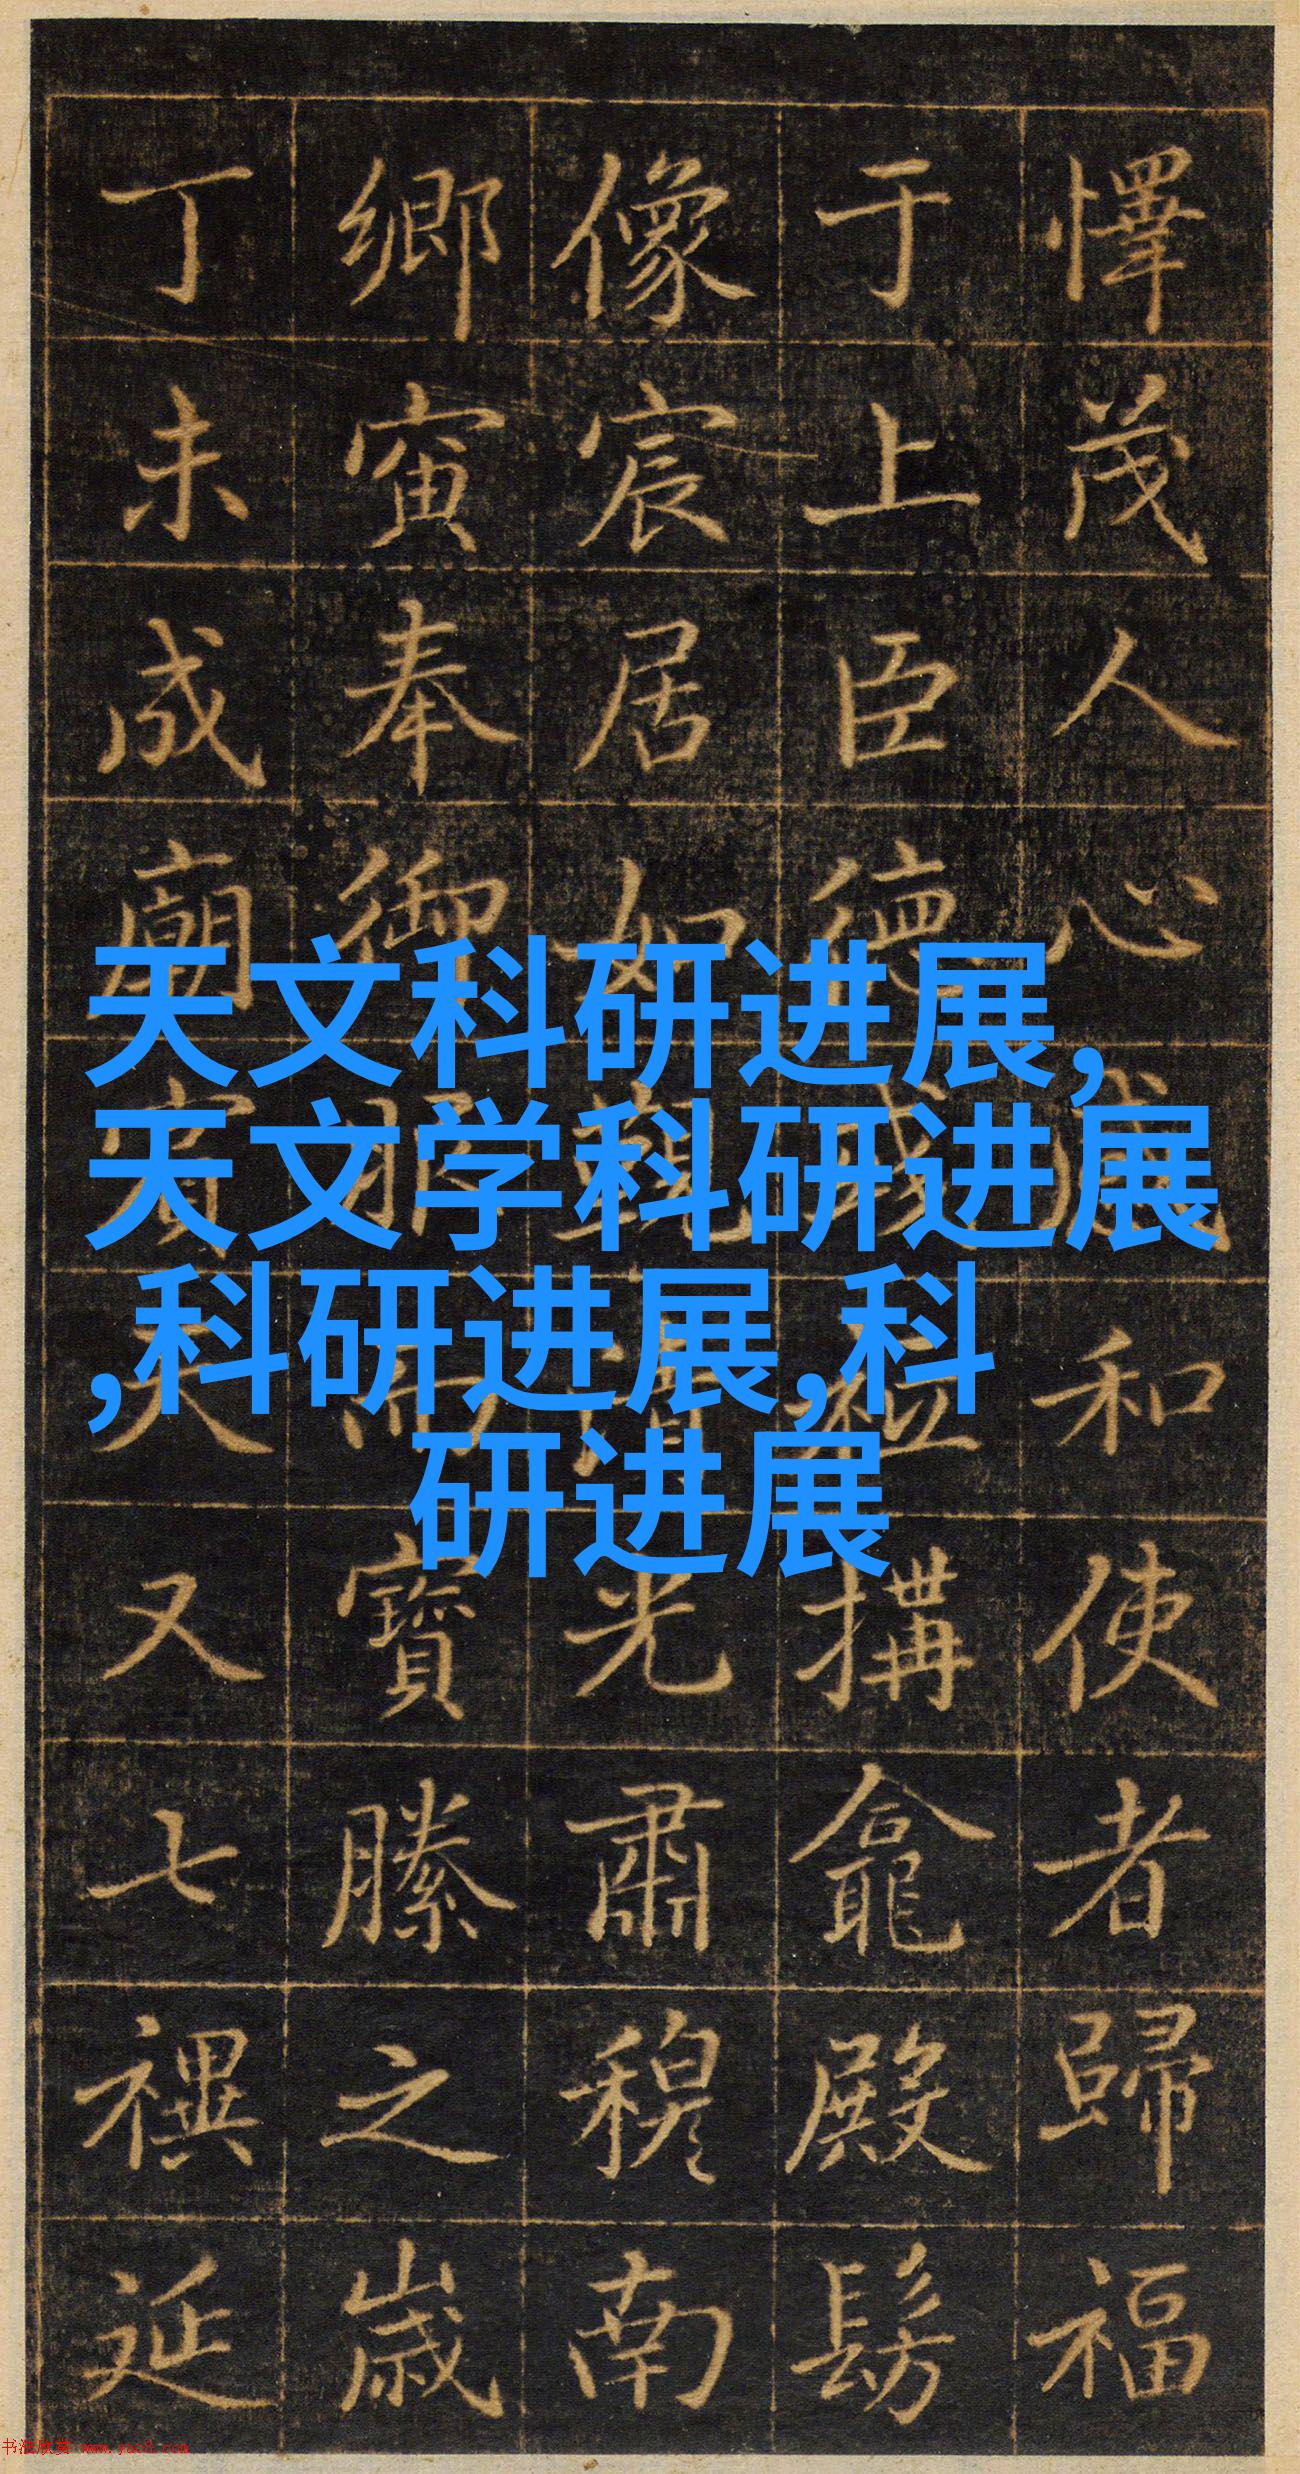 懌茂人心和使者歸福
于上臣德搆龕殿髣
像宸居如光肅穆南
鄉寅奉御服而寶縢之歲
丁未成廟賓天又七禩延
天文科研进展,
天文学科研进展
,科研进展,科
研进展
书法欣赏 www.yac8.com